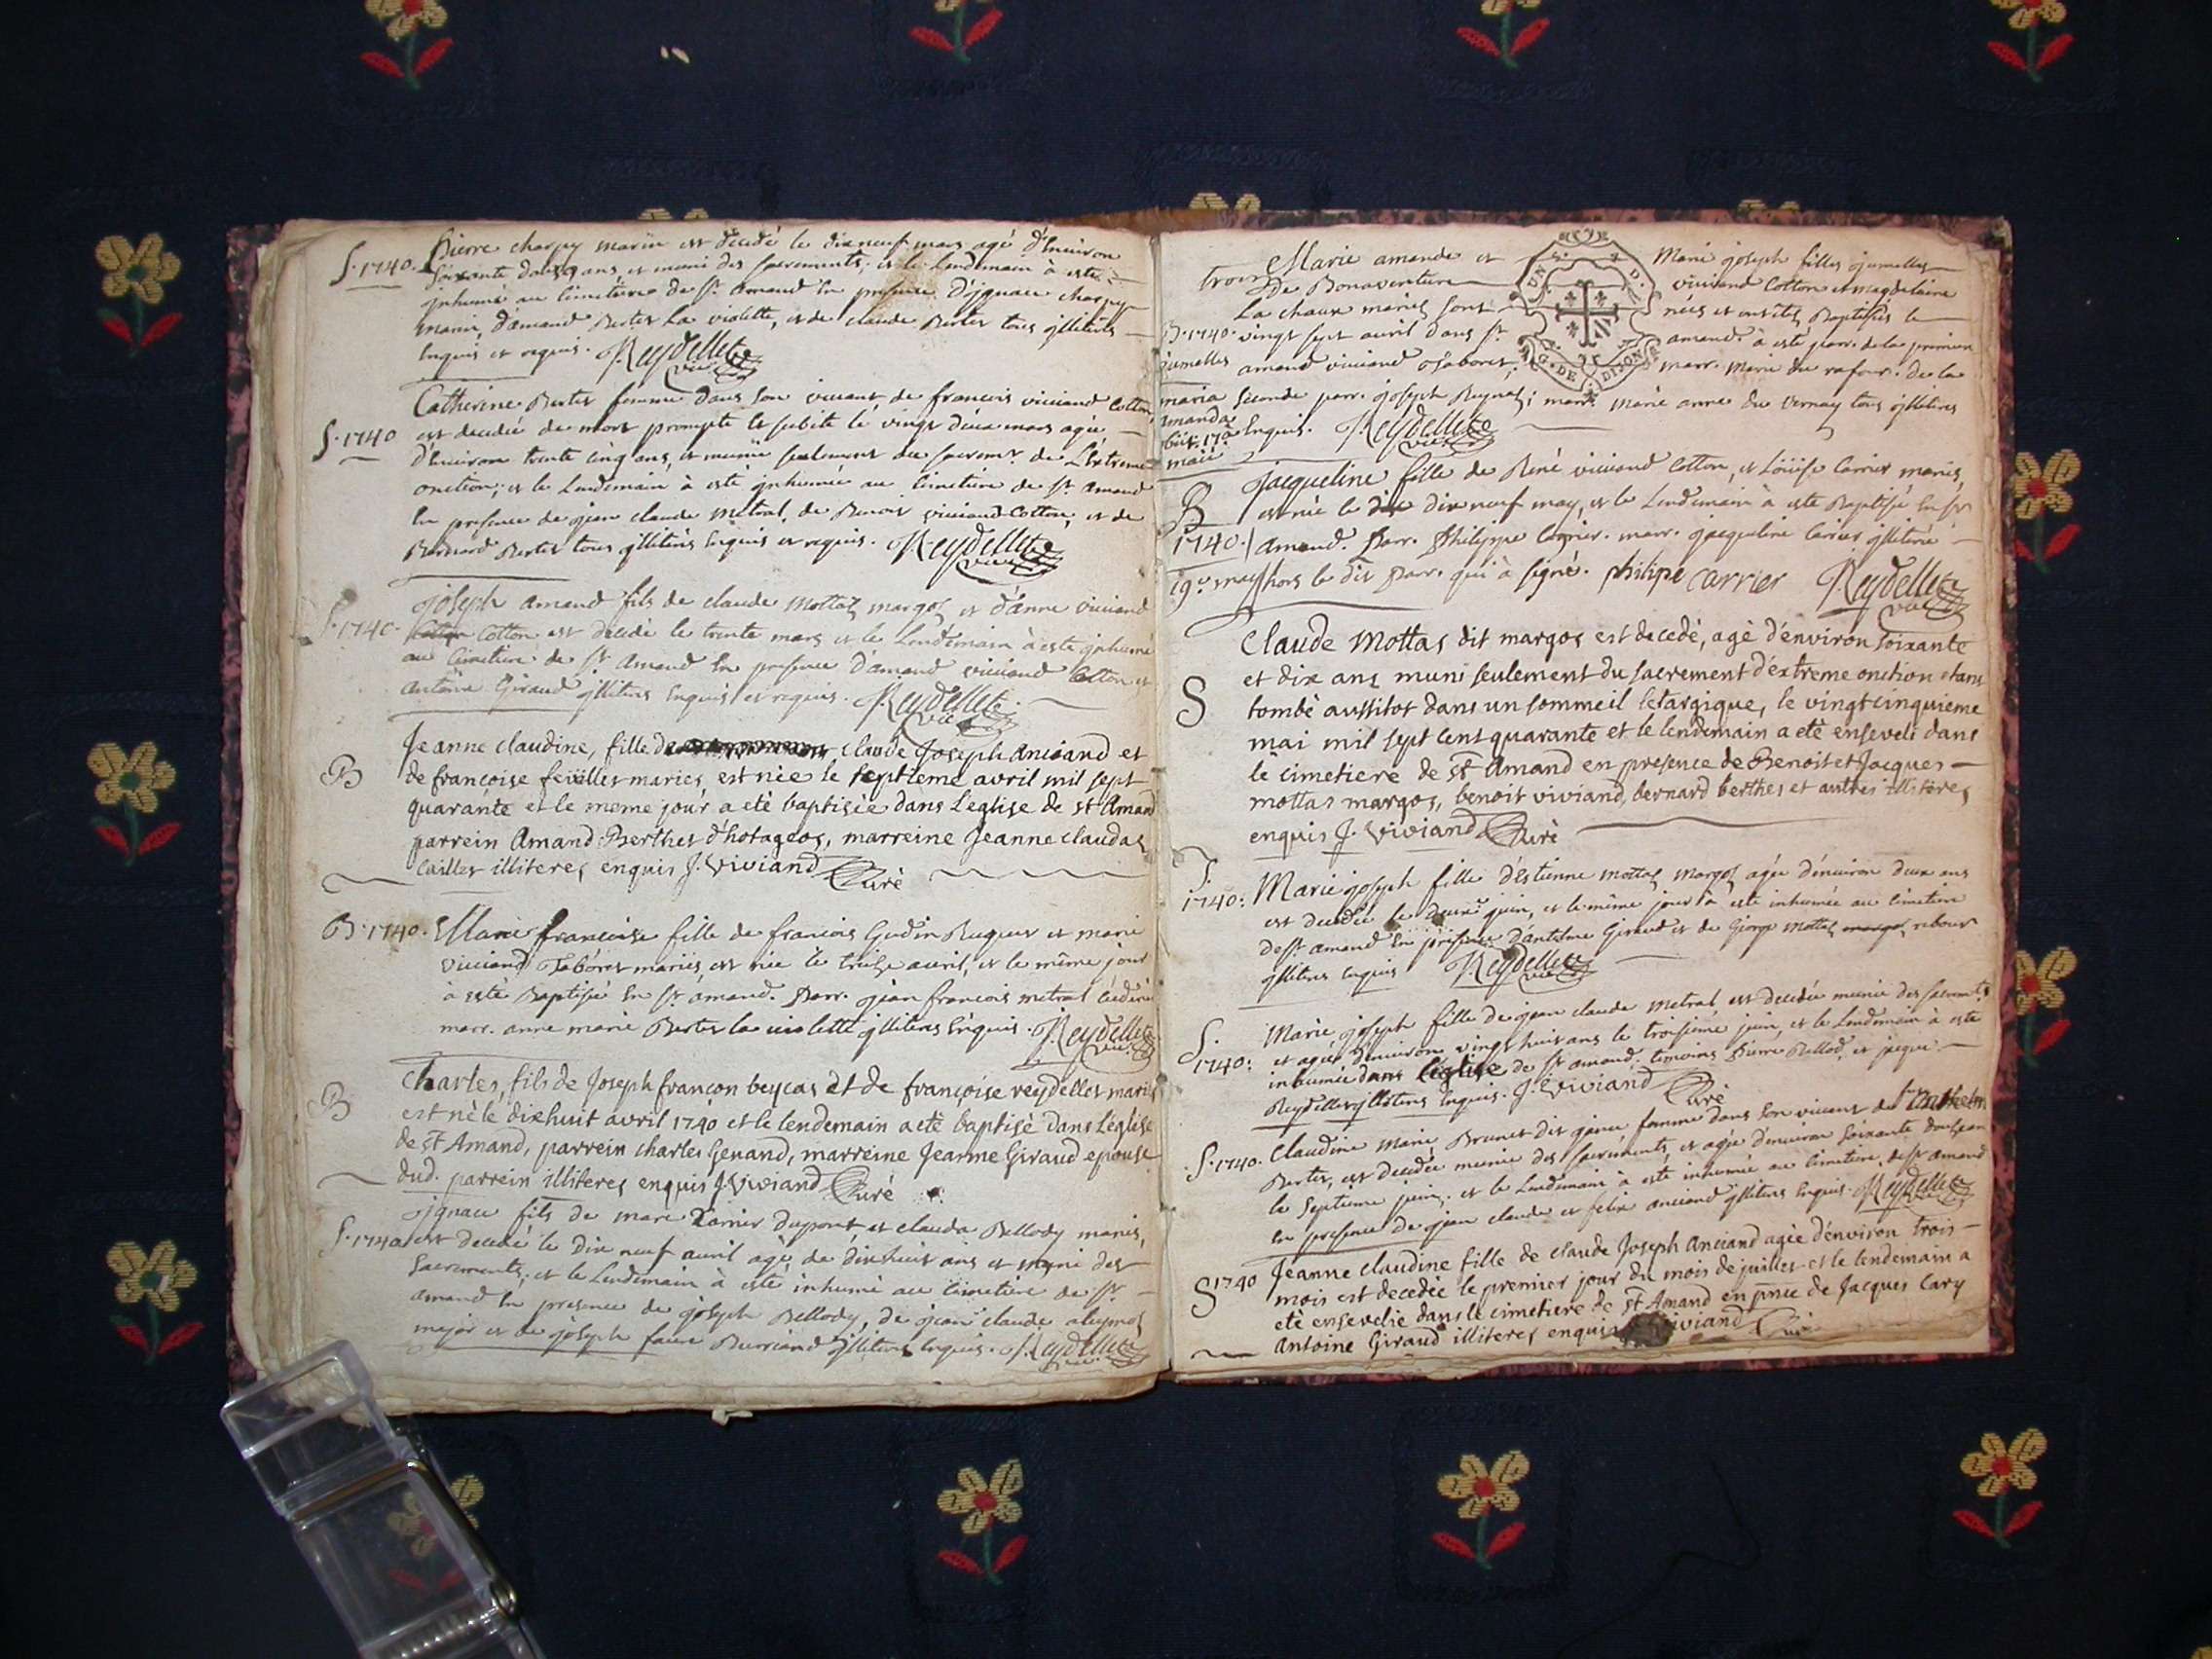 S. 1740. Pierre charpy marin est decedé le dixneuf mars agé d'environ
soixante douze ans, et muni des sacrements; et le Lendemain à esté
inhumé au cimetiere de St. amand En presence d'ignace charpy
marin, d'amand Berter La violette, et de claude Berter tous illiterés
Enquis et requis. Reydellet vic
Catherine Berter femme dans son vivant de francois viviand Cotton,
S. 1740 est decedée de mort prompte et subite le vingt deux mars agée
d'environ trente cinq ans, et munie seulement du sacremt. de L'extreme
onction; et le Lendemain à esté inhumée au cimetiere de St. amand
En presence de jean claude metral, de Benoit viviand Cotton, et de
Bernard Berter tous illiterés Enquis et requis. Reydellet vic
joseph amand fils de claude Mottas margos et d'anne viviand
S. 1740. Cotton est decedé le trente mars et le Lendemain à esté inhumé
au cimetiere de St. amand En presence d'amand viviand Cotton et
antoine Giraud illiterés Enquis et requis. Reydellet vic
Jeanne claudine, fille de claude Joseph anciand et
B de françoise feüilles mariés, est née le septieme avril mil sept
quarante et le meme jour a eté baptisée dans l'eglise de st Amand
parrein Amand Berthet d'hotageos, marreine Jeanne claudas
Cailler illiteres enquis J. Viviand Curé
B. 1740. Marie francoise fille de francois Gudin Ruguer et marie
viviand Taboret mariés, est née le treize avril, et le même jour
à esté Baptisée En St. amand. Parr. jean francois metral
marr. anne marie Berter la violette illiterés Enquis. Reydellet vic
Charles, fils de Joseph françon beycas et de françoise reydellet mariés
B est né le dixhuit avril 1740 et le lendemain a eté baptisé dans l'église
de St Amand, parrein charles Genand, marreine Jeanne Giraud epouse
dud. parrein illiteres enquis J. Viviand Curé
ignace fils de marc Carrier dupont, et claudа Bellody mariés,
S. 1740 est decedé le dix neuf avril agé de dixhuit ans et muni des
Sacrements; et le Lendemain à esté inhumé au cimetiere de St.
amand En presence de joseph Bellody, de jean claude
major et de joseph faure Burriand illiterés Enquis. Reydellet vic
Marie amande et Marie joseph filles jumelles
trois De Bonaventure viviand Cotton et magdelaine
La chaux mariés sont nées et ont étés Baptisées le
B. 1740. vingt sept avril dans St. amand. à esté parr. de la premiere
jumelles amand viviand Taboret, marr. marie du rafour. de la
maria seconde parr. joseph Reynes; marr. marie anne du Vernay tous illiterés
amanda Enquis. Reydellet vic
obiit. 17a
maii
jacqueline fille de René viviand Cotton, et Loüise Carrier mariés,
B est née le dix neuf may, et le Lendemain à esté Baptisée En St.
1740. amand. Parr. Philippe Carrier. marr. jacqueline Carrier illiterée
19e. may hors le dit Parr. qui à signé. philipe carrier Reydellet vic
Claude Mottas dit margos est decedé, agé d'environ soixante
et dix ans muni seulement du sacrement d'extreme onction etant
S tombé aussitot dans un sommeil letargique, le vingtcinquieme
mai mil sept cent quarante et le lendemain a eté enseveli dans
le cimetiere de St Amand en presence de Benoit et Jacques
mottas margos, benoit viviand, bernard berthet et autres illiteres
enquis J. Viviand Curé
S.
1740: Marie joseph fille d'estienne mottas margos agée d'environ deux ans
est decedée le deuxe. juin, et le même jour à esté inhumée au cimetiere
de St. amand En presence d'antelme Giraud et de George mottas rebour
illiterés Enquis Reydellet vic
S. Marie joseph fille de jean claude metral est decedée munie des sacremts.
1740: et agée d'environ vingt huit ans le troisieme juin, et le Lendemain à esté
inhumée dans l'eglise de St. amand. temoins Pierre Bellod, et jacque
Reydellet illiterés Enquis. J. Viviand Curé
S. 1740. Claudine marie Brunet dit janin femme dans son vivant de feu anthelme
Berter, est decedée munie des sacrements, et agée d'environ soixante douze ans
le septieme juin, et le Lendemain à esté inhumée au cimetiere de St amand
En presence de jean claude et felix anciand illiterés Enquis. Reydellet
Jeanne claudine fille de claude Joseph anciand agée d'environ trois
S 1740 mois est decedée le premier jour du mois de juillet et le lendemain a
eté ensevelie dans le cimetiere de St Amand en pnce de Jacques Cary
Antoine Giraud illiteres enquis J. Viviand Curé